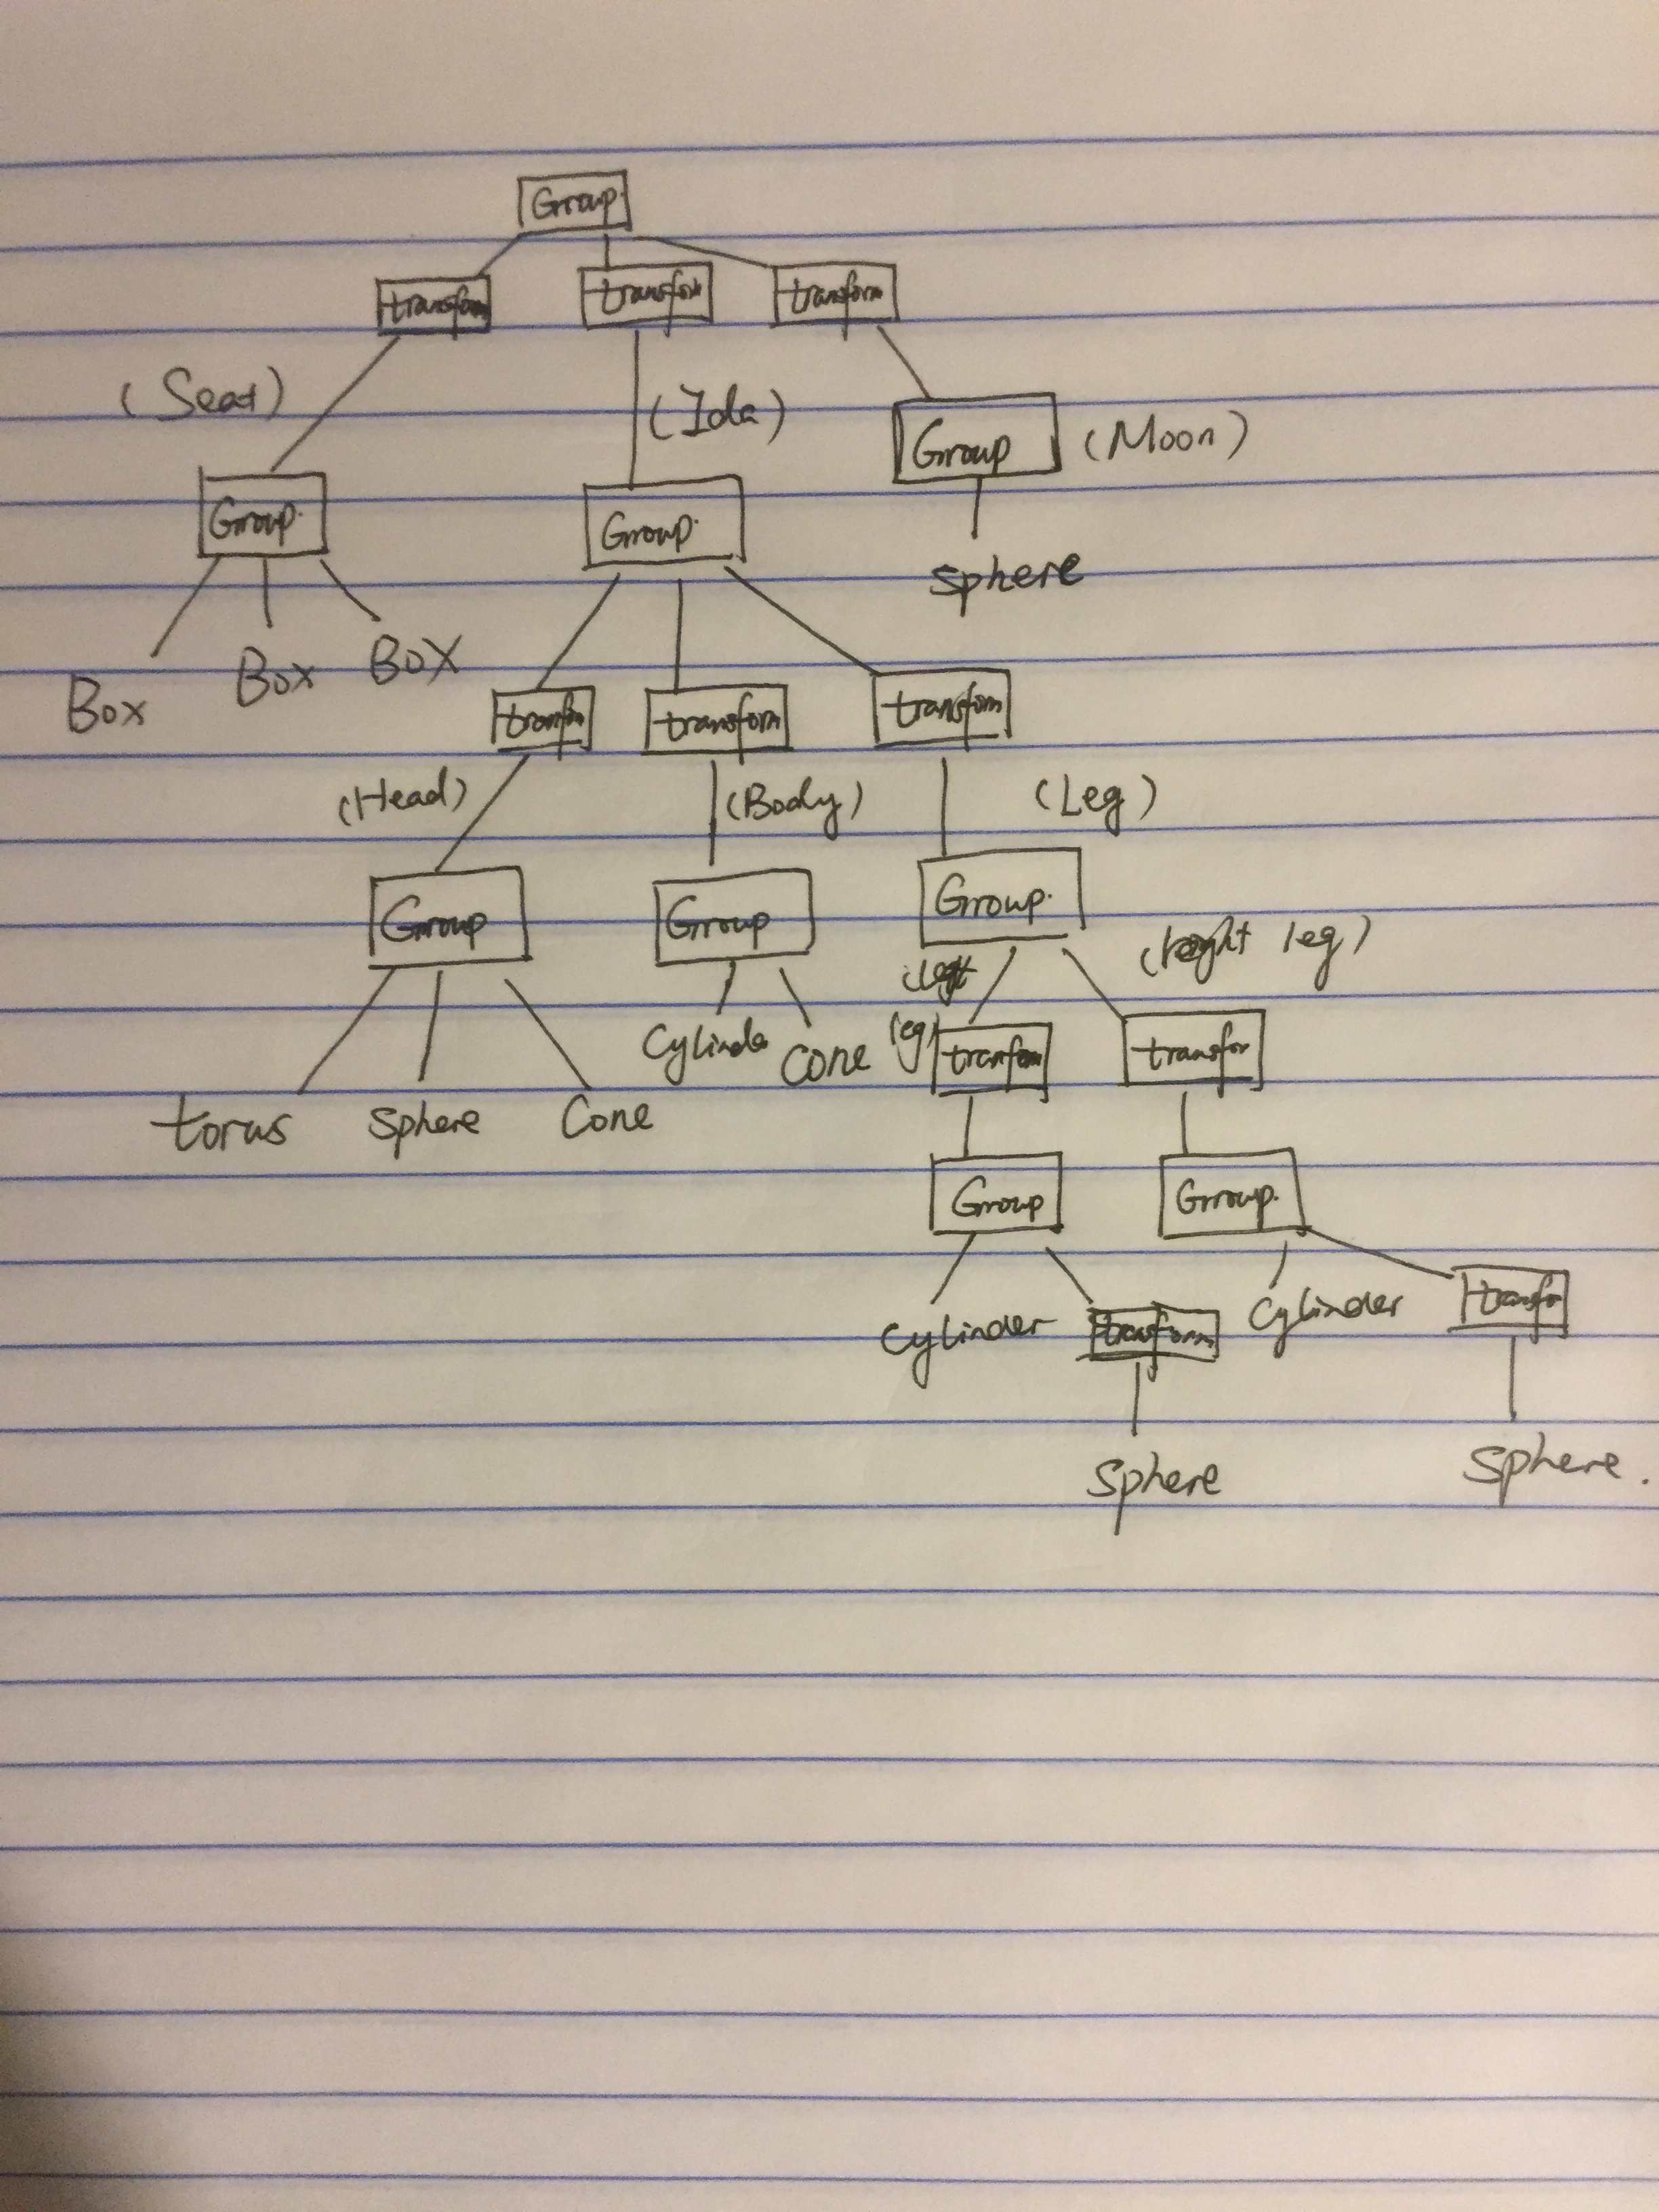 Group
transform transform transform
(Seat) (Ida) Group (Moon)
Group Group
sphere
Box Box Box
tranfm transform transform
(Head) (Body) (Leg)
Group Group Group
(left leg) (right leg)
Cylinde cone tranfom transfor
torus sphere Cone
Group Group
cylinder transform cylinder transfo
sphere sphere.